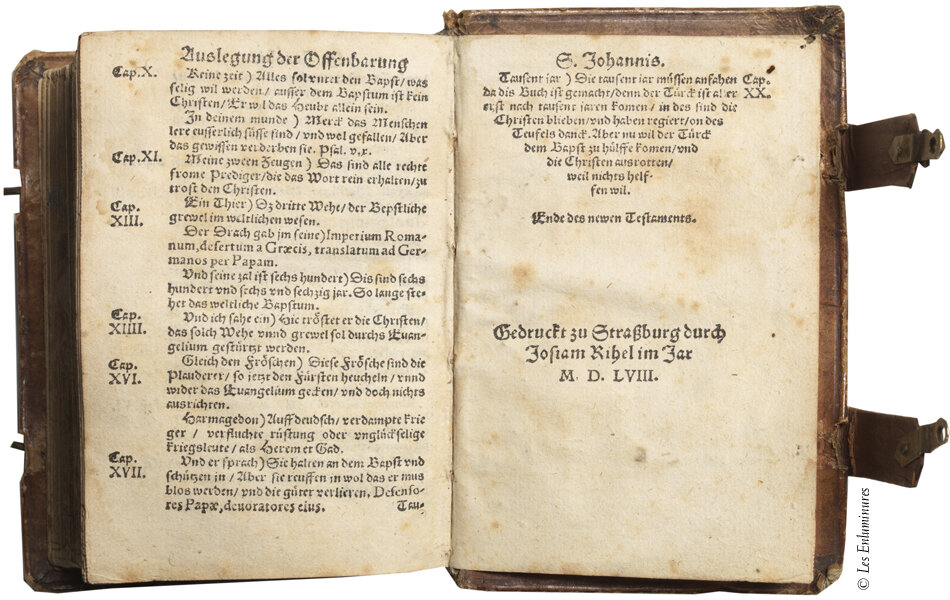 Auslegung der Offenbarung
Cap. X. Keine zeit) Alles sol vnter den Bapst/was
selig wil werden/ ausser dem Bapstum ist kein
Christen/Er wil das Heubt allein sein.
In deinem munde) Merck das Menschen
lere eusserlich süsse sind/vnd wol gefallen/Aber
das gewissen verderben sie. Psal. v.x.
Cap. XI. Meine zween Zeugen) Das sind alle rechte
frome Prediger/die das Wort rein erhalten/zu
trost den Christen.
Cap. XIII. Ein Thier) Dz dritte Wehe/der Bepstliche
grewel im weltlichen wesen.
Der Drach gab jm seine) Imperium Roma-
num, desertum a Græcis, translatum ad Ger-
manos per Papam.
Vnd seine zal ist sechs hundert) Dis sind sechs
hundert vnd sechs vnd sechzig jar. So lange ste-
het das weltliche Bapstum.
Cap. XIIII. Vnd ich sahe ein) Hie tröstet er die Christen/
das solch Wehe vnnd grewel sol durchs Euan-
gelium gestürtzt werden.
Cap. XVI. Gleich den Fröschen) Diese Frösche sind die
Plauderer/ so jetzt den Fürsten heucheln/ vnnd
wider das Euangelium gecken/vnd doch nichts
ausrichten.
Harmagedon) Auff deudsch/ verdampte krie
ger / verfluchte rüstung oder vnglückselige
kriegsleute/als Herem et Gad.
Cap. XVII. Vnd er sprach) Sie halten an dem Bapst vnd
schützen in/ Aber sie reuffen in wol das er mus
blos werden/vnd die güter verlieren. Defenso-
res Papæ, deuoratores eius. Tau-
S. Johannis.
Tausent jar) Die tausent jar müssen anfahen Cap. XX.
da dis Buch ist gemacht/denn der Türck ist aller
erst nach tausent jaren komen/ in des sind die
Christen blieben/vnd haben regiert/on des
Teufels danck. Aber nu wil der Türck
dem Bapst zu hülffe komen/vnd
die Christen ausrotten/
weil nichts helf-
fen wil.
Ende des newen Testaments.
Gedruckt zu Straßburg durch
Josiam Rihel im Jar
M. D. LVIII.
© Les Enluminures